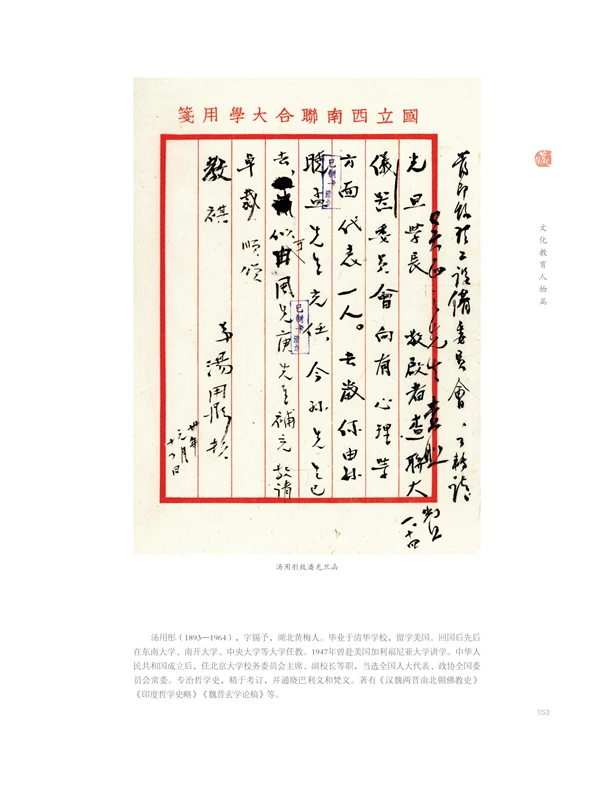 國立西南聯合大學用箋
光旦學長 敬啟者查聯大
儀器委員會向有心理學
方面代表一人。去歲係由孫
曉孟先生充任，今孫先生已
去，似可由周先庚先生補充 敬請
卓裁 順頌
教祺
弟湯用彤
卅年
元月
十一日
已制卡
已制卡
文化教育人物篇
汤用彤致潘光旦函
汤用彤（1893—1964），字锡予，湖北黄梅人。毕业于清华学校，留学美国。回国后先后
在东南大学、南开大学、中央大学等大学任教。1947年曾赴美国加利福尼亚大学讲学。中华人
民共和国成立后，任北京大学校务委员会主席、副校长等职，当选全国人大代表、政协全国委
员会常委。专治哲学史，精于考订，并通晓巴利文和梵文。著有《汉魏两晋南北朝佛教史》
《印度哲学史略》《魏晋玄学论稿》等。
153